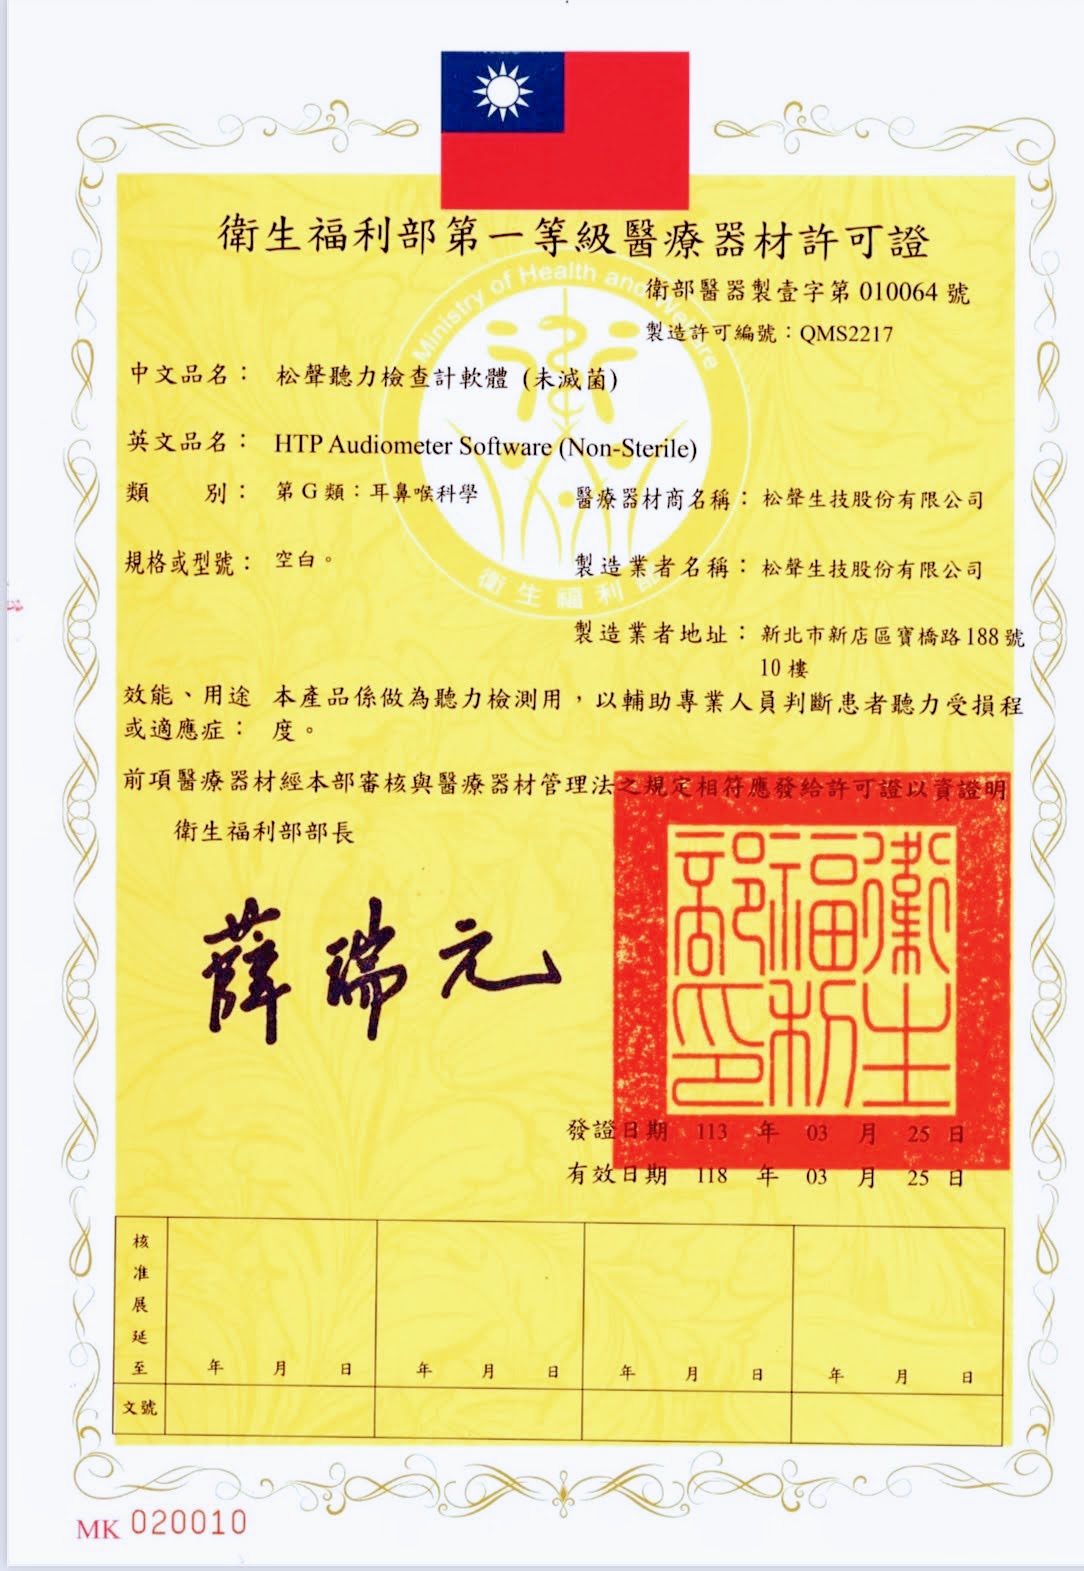 衛生福利部第一等級醫療器材許可證
衛部醫器製壹字第 010064 號
製造許可編號：QMS2217
Ministry of Health and Welfare
中文品名： 松聲聽力檢查計軟體 (未滅菌)
英文品名： HTP Audiometer Software (Non-Sterile)
類　　別： 第 G 類：耳鼻喉科學
醫療器材商名稱： 松聲生技股份有限公司
規格或型號： 空白。
製造業者名稱： 松聲生技股份有限公司
衛生福利部
製造業者地址： 新北市新店區寶橋路188號
10樓
效能、用途 本產品係做為聽力檢測用，以輔助專業人員判斷患者聽力受損程
或適應症： 度。
前項醫療器材經本部審核與醫療器材管理法之規定相符應發給許可證以資證明
衛生福利部部長
薛瑞元
衛生福利部印
發證日期 113 年 03 月 25 日
有效日期 118 年 03 月 25 日
核准展延至 年 月 日 年 月 日 年 月 日 年 月 日
文號
MK 020010